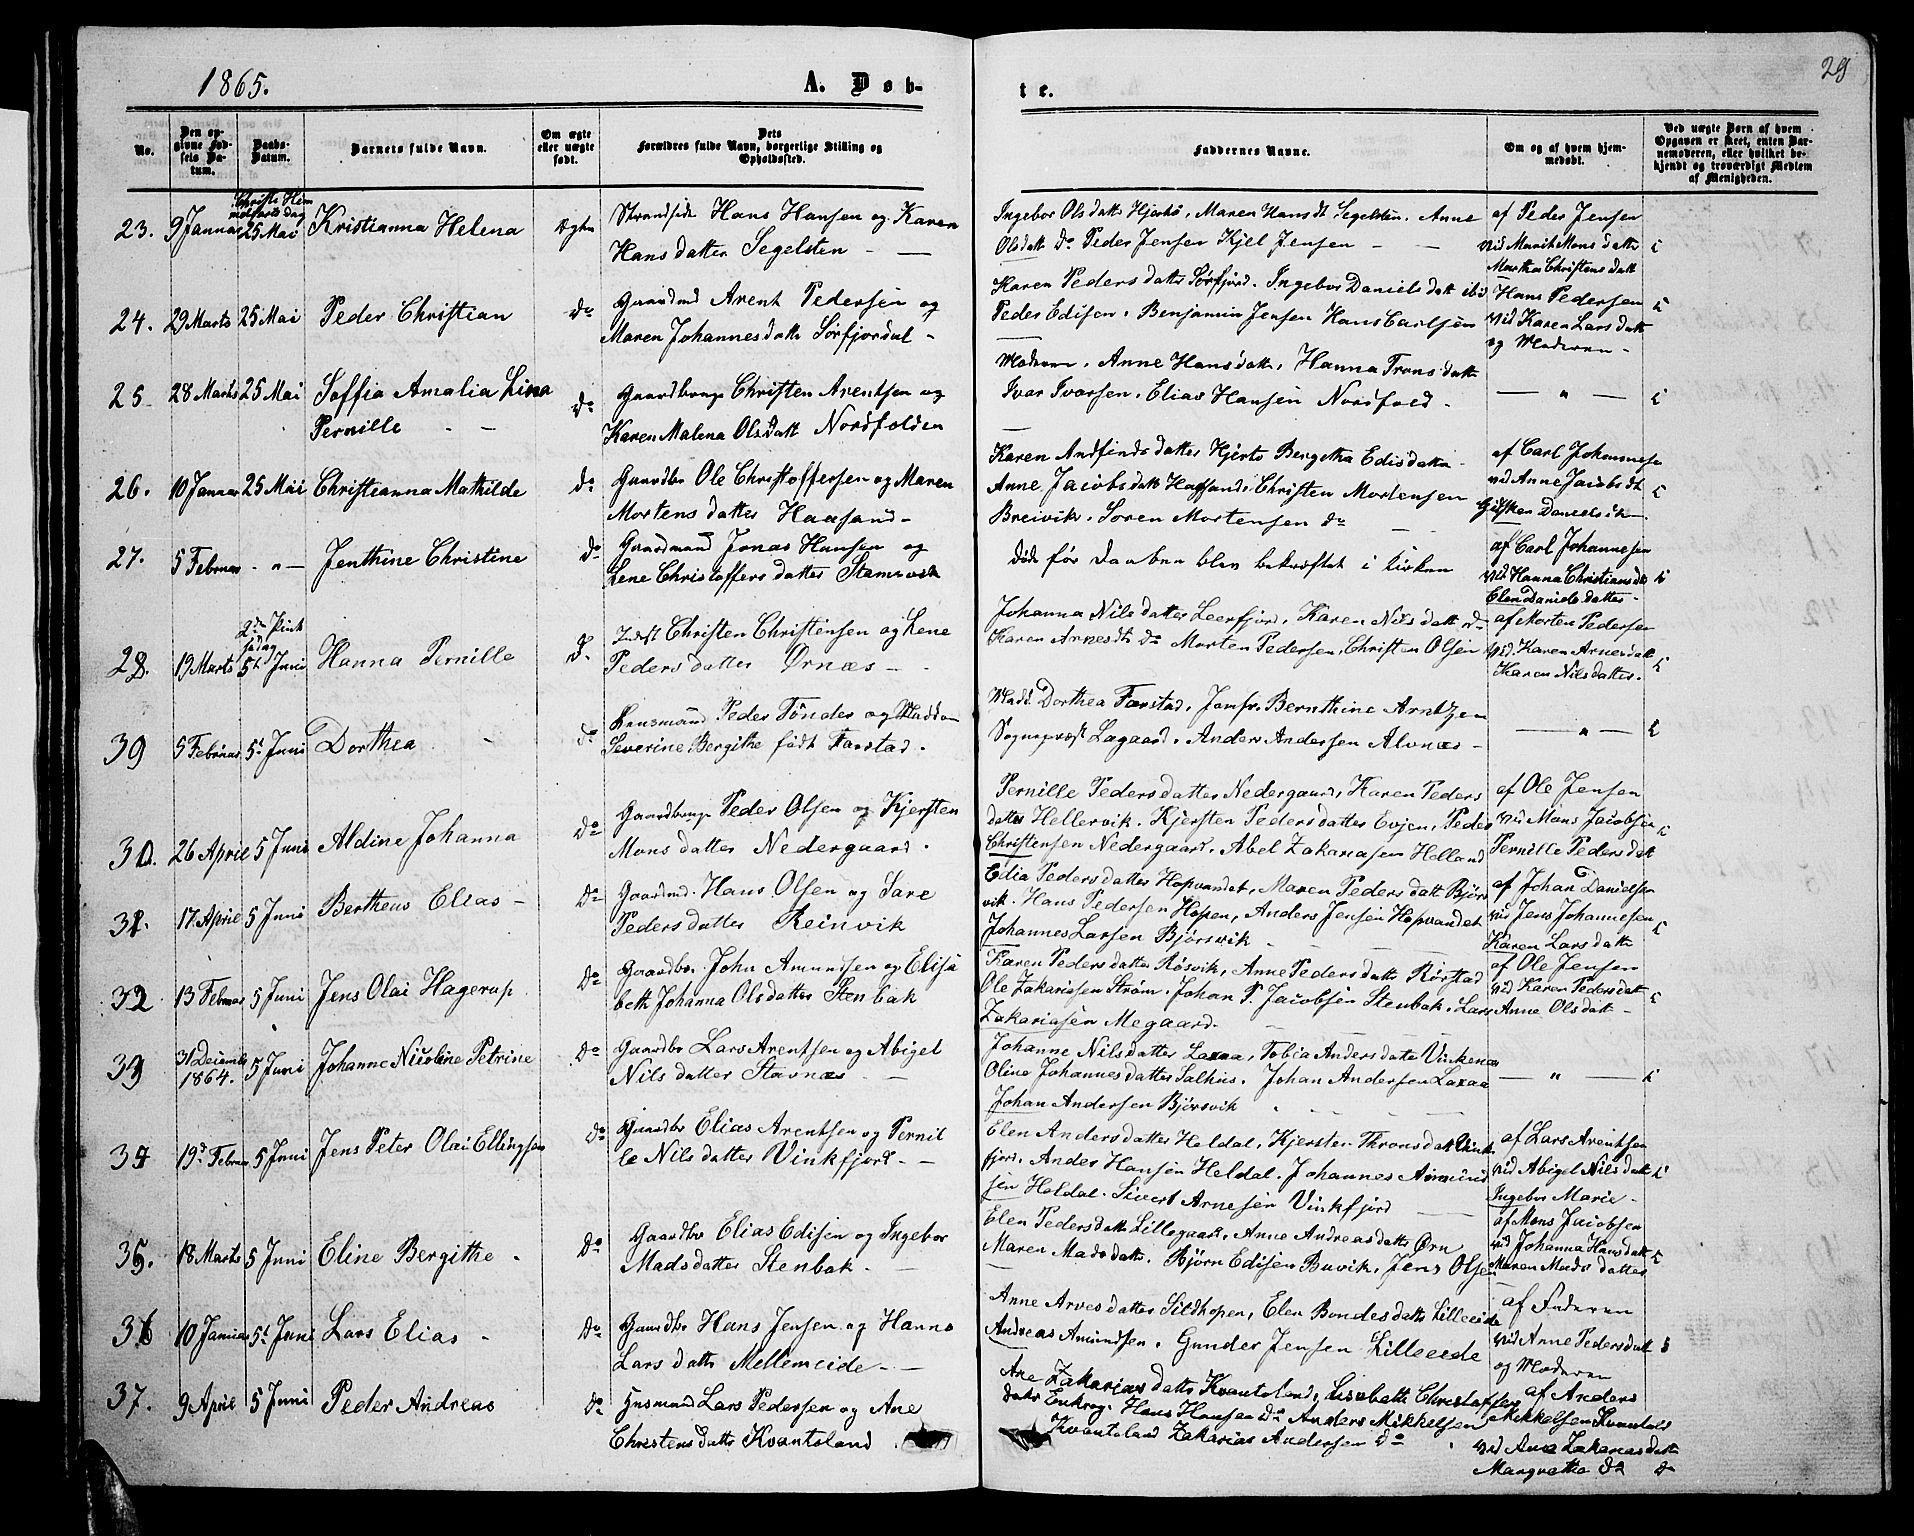 1865.
A. Døb-
te.
29
No.
Den op-
givne Fød-
sels Da-
tum.
Daabs-
Datum.
Barnets fulde Navn.
Om ægte
eller uægte
født.
Dets
Forældres fulde Navn, borgerlige Stilling og
Opholdssted.
Faddernes Navne.
Om og af hvem hjem-
medøbt.
Ved uægte Børn af hvem
Opgaven er skeet, enten Bar-
nemoderen, eller hvilket be-
kjendt og troværdigt Medlem
af Menigheden.
23. 9 Januar
Christi Him
melfarts dag
25 Mai
Kristianna Helena
Ægte
Strandsidr Hans Hansen og Karen
Hansdatter Segelsten
Ingebor Olsdattr Hjertø, Maren Hansdt Segelsten. Anne
Olsdatt do Peder Jensen Kjel Jensen
af Peder Jensen
vid Marit Monsdatter
Martha Christensdatt
24. 29 Marts 25 Mai Peder Christian do
Gaardmd Arent Pedersen og
Maren Johannesdatter Sørfjordal
Karen Pedersdatter Sørfjord. Ingebor Danielsdatt ibid
Peder Edisen, Benjamin Jensen Hans Carlsen
Hans Pedersen
vid Karen Larsdatt
og Moderen
25 28 Marts 25 Mai Soffia Amalia Lina
Pernille
do
Gaardbrugr Christen Arentsen og
Karen Malena Olsdatt Nordfolden
Moderen, Anne Hansdatt, Hanna Tronsdatt
Ivar Ivarsen, Elias Hansen Nordfold.
26. 10 Januar 25 Mai Christianna Mathilde do
Gaardbr Ole Christoffersen og Maren
Mortensdatter Haasand
Karen Andfindsdatter Hjertø Bergitha Edisdatter
Anne Jacobsdatt Haasand, Christen Mortensen
Breivik. Søren Mortensen do
af Carl Johannesen
vid Anne Jacobsdt
27. 5 Februar - " - Jenthine Christine do
Gaardmand Jonas Hansen og
Lene Christoffersdatter Stamsvik
Døde før Daaben blev bekræftet i Kirken
af Carl Johannesen
vid Hanna Christiansdt
Elen Danielsdatter
28. 19 Marts
2den Pint
sedag
5t Juni
Hanna Pernille
Indst Christen Christensen og Lene
Pedersdatter Ørnæs
Johanna Nilsdatter Leerfjord, Karen Nilsdatt do
Karen Arnesdt do Morten Pedersen, Christen Olsen
af Morten Pedersen
vid Karen Arnesdatt
Karen Nilsdatter.
39 5 Februar 5t Juni Dorthea do
Lensmand Peder Tønder og Maddam
Severine Bergithe født Farstad.
Madd. Dorthea Farstad, Jomfr. Bernthine Arntzen
Sogneprest Lagaard, Anders Andersen Alvnæs
30. 26 April 5 Juni Aldine Johanna do
Gaardbrugr Peder Olsen og Kjersten
Monsdatter Nedergaard.
Pernille Pedersdatter Nedergaard, Karen Peders
datter Hellervik. Kjersten Pedersdatter Evjen, Peder
Christensen Nedergaard. Abel Zakariasen Helland
af Ole Jensen
vid Mons Jacobsen
Pernille Pedersdatt
31. 17 April 5 Juni Bertheus Elias do
Gaardmd. Hans Olsen og Sare
Pedersdatter Reinvik
Edia Pedersdatter Hopvandet, Maren Pedersdatt Bjørs
vik. Hans Pedersen Hopen, Anders Jensen Hopvandet
Johannes Larsen Bjørsvik
af Johan Danielsen
vid Jens Johannesen
Karen Larsdatt
32 13 Februar 5 Juni Jens Olai Hagerup do
Gaardbr John Amundsen og Elisa
beth Johanna Olsdatter Stenbak
Karen Pedersdatter Røsvik, Anne Pedersdatt Rørstad
Ole Zakariasen Strøm. Johan P. Jacobsen Stenbak, Lars
Zakariasen Megaard.
af Ole Jensen
vid Karen Pedersdatt
Anne Olsdatt
33 31 Decembr
1864. 5 Juni Johanne Nicoline Petrine do
Gaardbr Lars Arentsen og Abigel
Nilsdatter Stavnæs
Johanne Nilsdatter Laxaa, Tobia Andersdatt Vinkenæs
Oline Johannesdatter Salhus, Johan Andersen Laxaa
Johan Andersen Bjørsvik
34 19d Februar 5 Juni Jens Peter Olai Ellingsen do
Gaardbr Elias Arentsen og Pernil
le Nilsdatter Vinkfjord
Elen Andersdatter Heldal, Kjersten Thronsdatt Vink
fjord, Anders Hansen Heldal. Johannes Amund
sen Heldal. Sivert Arnesen Vinkfjord
af Lars Arentsen
vid Abigel Nilsdatt
Ingebor Marie
35. 18 Marts 5 Juni Eline Bergithe do
Gaardbr Elias Edisen og Ingebor
Madsdatter Stenbak
Elen Pedersdatt Lillegaard, Anne Andreasdatter Ørn
Maren Madsdatt. Bjørn Edisen Buvik, Jens Olsen
af Mons Jacobsen
vid Johanna Hansdatt
Maren Madsdatter
36 10 Januar 5t Juni Lars Elias do
Gaardbr Hans Jensen og Hanna
Larsdatter Mellemeide
Anne Arnesdatter Sildhopen, Elen Bondesdatter Lilleeide
Andreas Amundsen, Gunder Jensen Lilleeide
af Faderen
vid Anne Pedersdatt
og Moderen
37. 9 April 5 Juni Peder Andreas do
Husmand Lars Pedersen og Ane
Christensdatter Kvantoland
Ane Zakariasdatter Kvantoland, Lisabeth Christoffers
datr Enkrog. Hans Hansen do Anders Mikkelsen
Kvantoland Zakarias Andersen do
af Anders
Mikkelsen Kvantol
vid Ane Zakariasdatt
Margrethe do